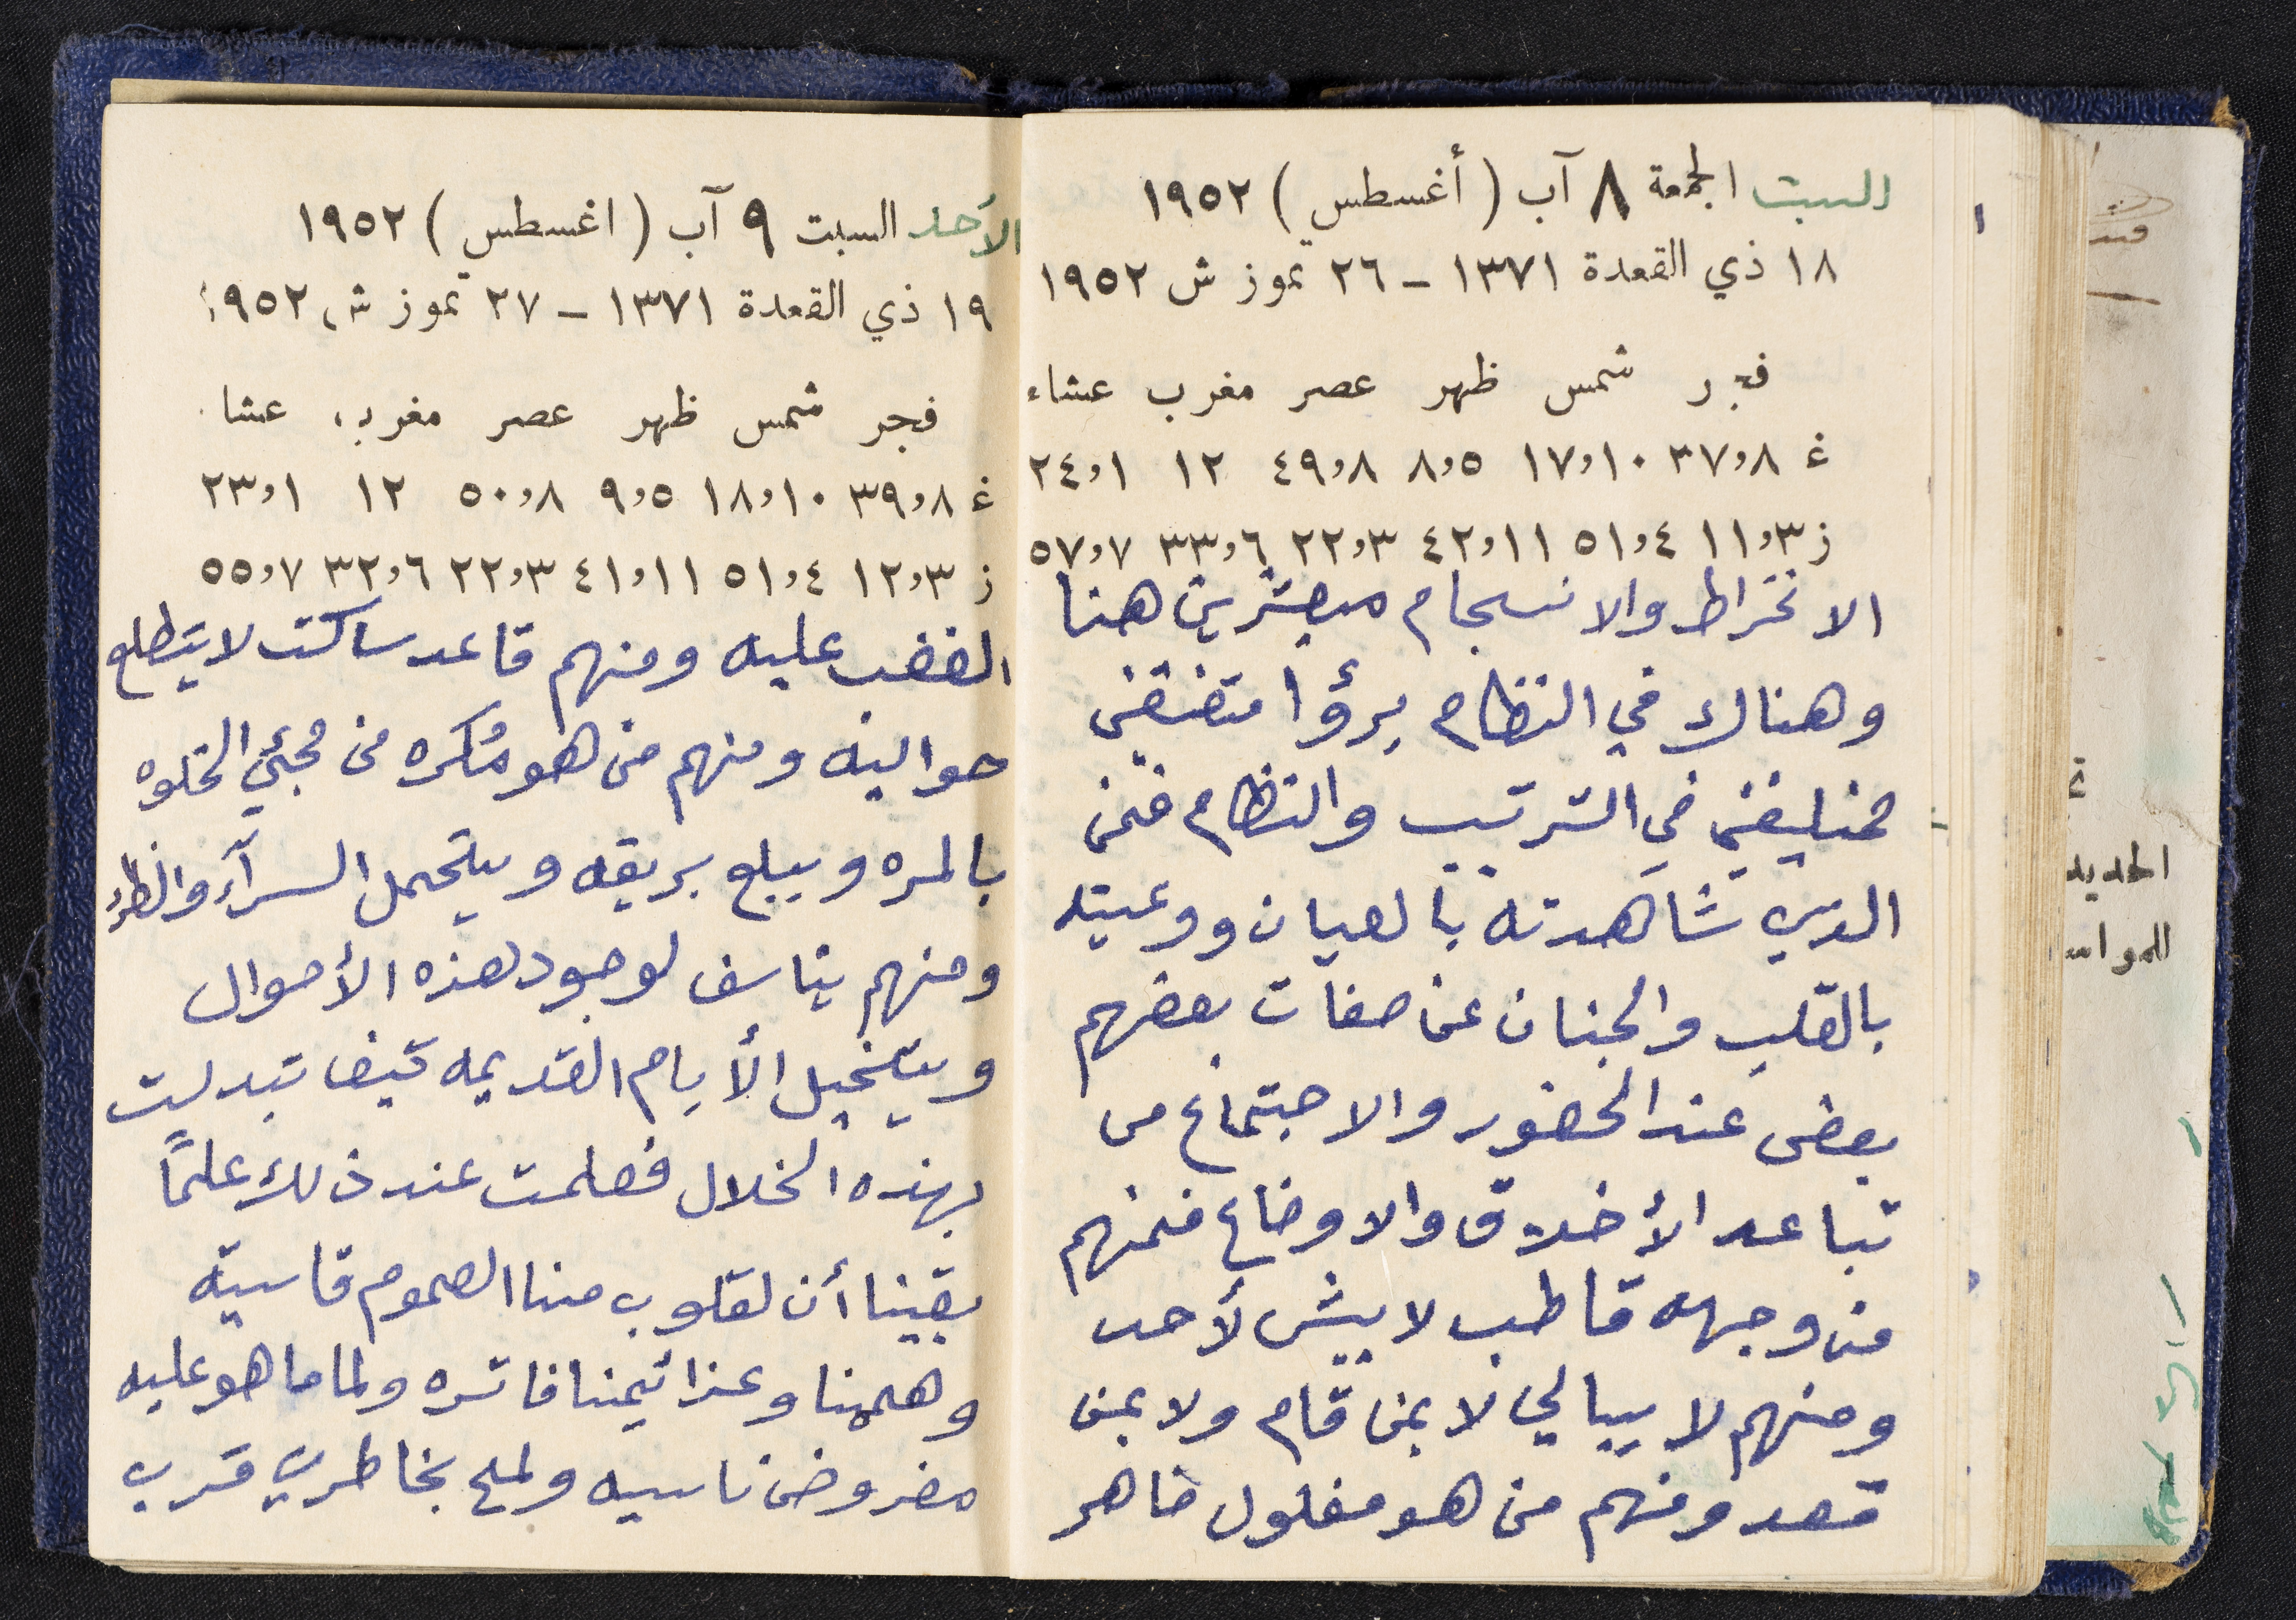 السبت الجمعة ٨ آب ( أغسطس ) ١٩٥٢
١٨ ذي القعدة ١٣٧١ - ٢٦ تموز ش ١٩٥٢
فجر شمس ظهر عصر مغرب عشاء
غ ٣٧,٨ ١٧,١٠ ٨,٥ ٤٩,٨ ١٢ ٢٤,١
ز ١١,٣ ٥١,٤ ٤٢,١١ ٢٢,٣ ٣٣,٦ ٥٧,٧
الانخراط والانسجام مبعثرين هنا
وهناك في النظام يرؤا متفقين
مختلفين في الترتيب والنظام فمن
الذي شاهدته بالعيان ووعيته
بالقلب والجنان عن صفات بعضهم
بعض عند الحضور والاجتماع من
تباعد الأخلاق والاوضاع فمنهم
من وجهه قاطب لا يبش لأحد
ومنهم لا يبالي لا بمن قام ولا بمن
قعد ومنهم من هو مغلول ظاهر
الأحد السبت ٩ آب ( اغسطس ) ١٩٥٢
١٩ ذي القعدة ١٣٧١ - ٢٧ تموز ش ١٩٥٢
فجر شمس ظهر عصر مغرب عشا
غ ٣٩,٨ ١٨,١٠ ٩,٥ ٥٠,٨ ١٢ ٢٣,١
ز ١٢,٣ ٥١,٤ ٤١,١١ ٢٢,٣ ٣٢,٦ ٥٥,٧
الغضب عليه ومنهم قاعد ساكت لا يتطلع
حواليه ومنهم من هو مُكره من مجئي الخلوه
بالمره ويبلع بريقه ويتحمل السرآء والظراء
ومنهم يتاسف لوجود هذه الأحوال
ويتخيل الأيام القديمه كيف تبدلت
بهذه الخلال فعلمت عند ذلك علمًا
يقينا أن لقلوب منا العموم قاسية
وهممنا وعزائمنا فاتره ولما ما هو عليه
مفروض ناسيه ولمح بخاطري قرب
الحديد